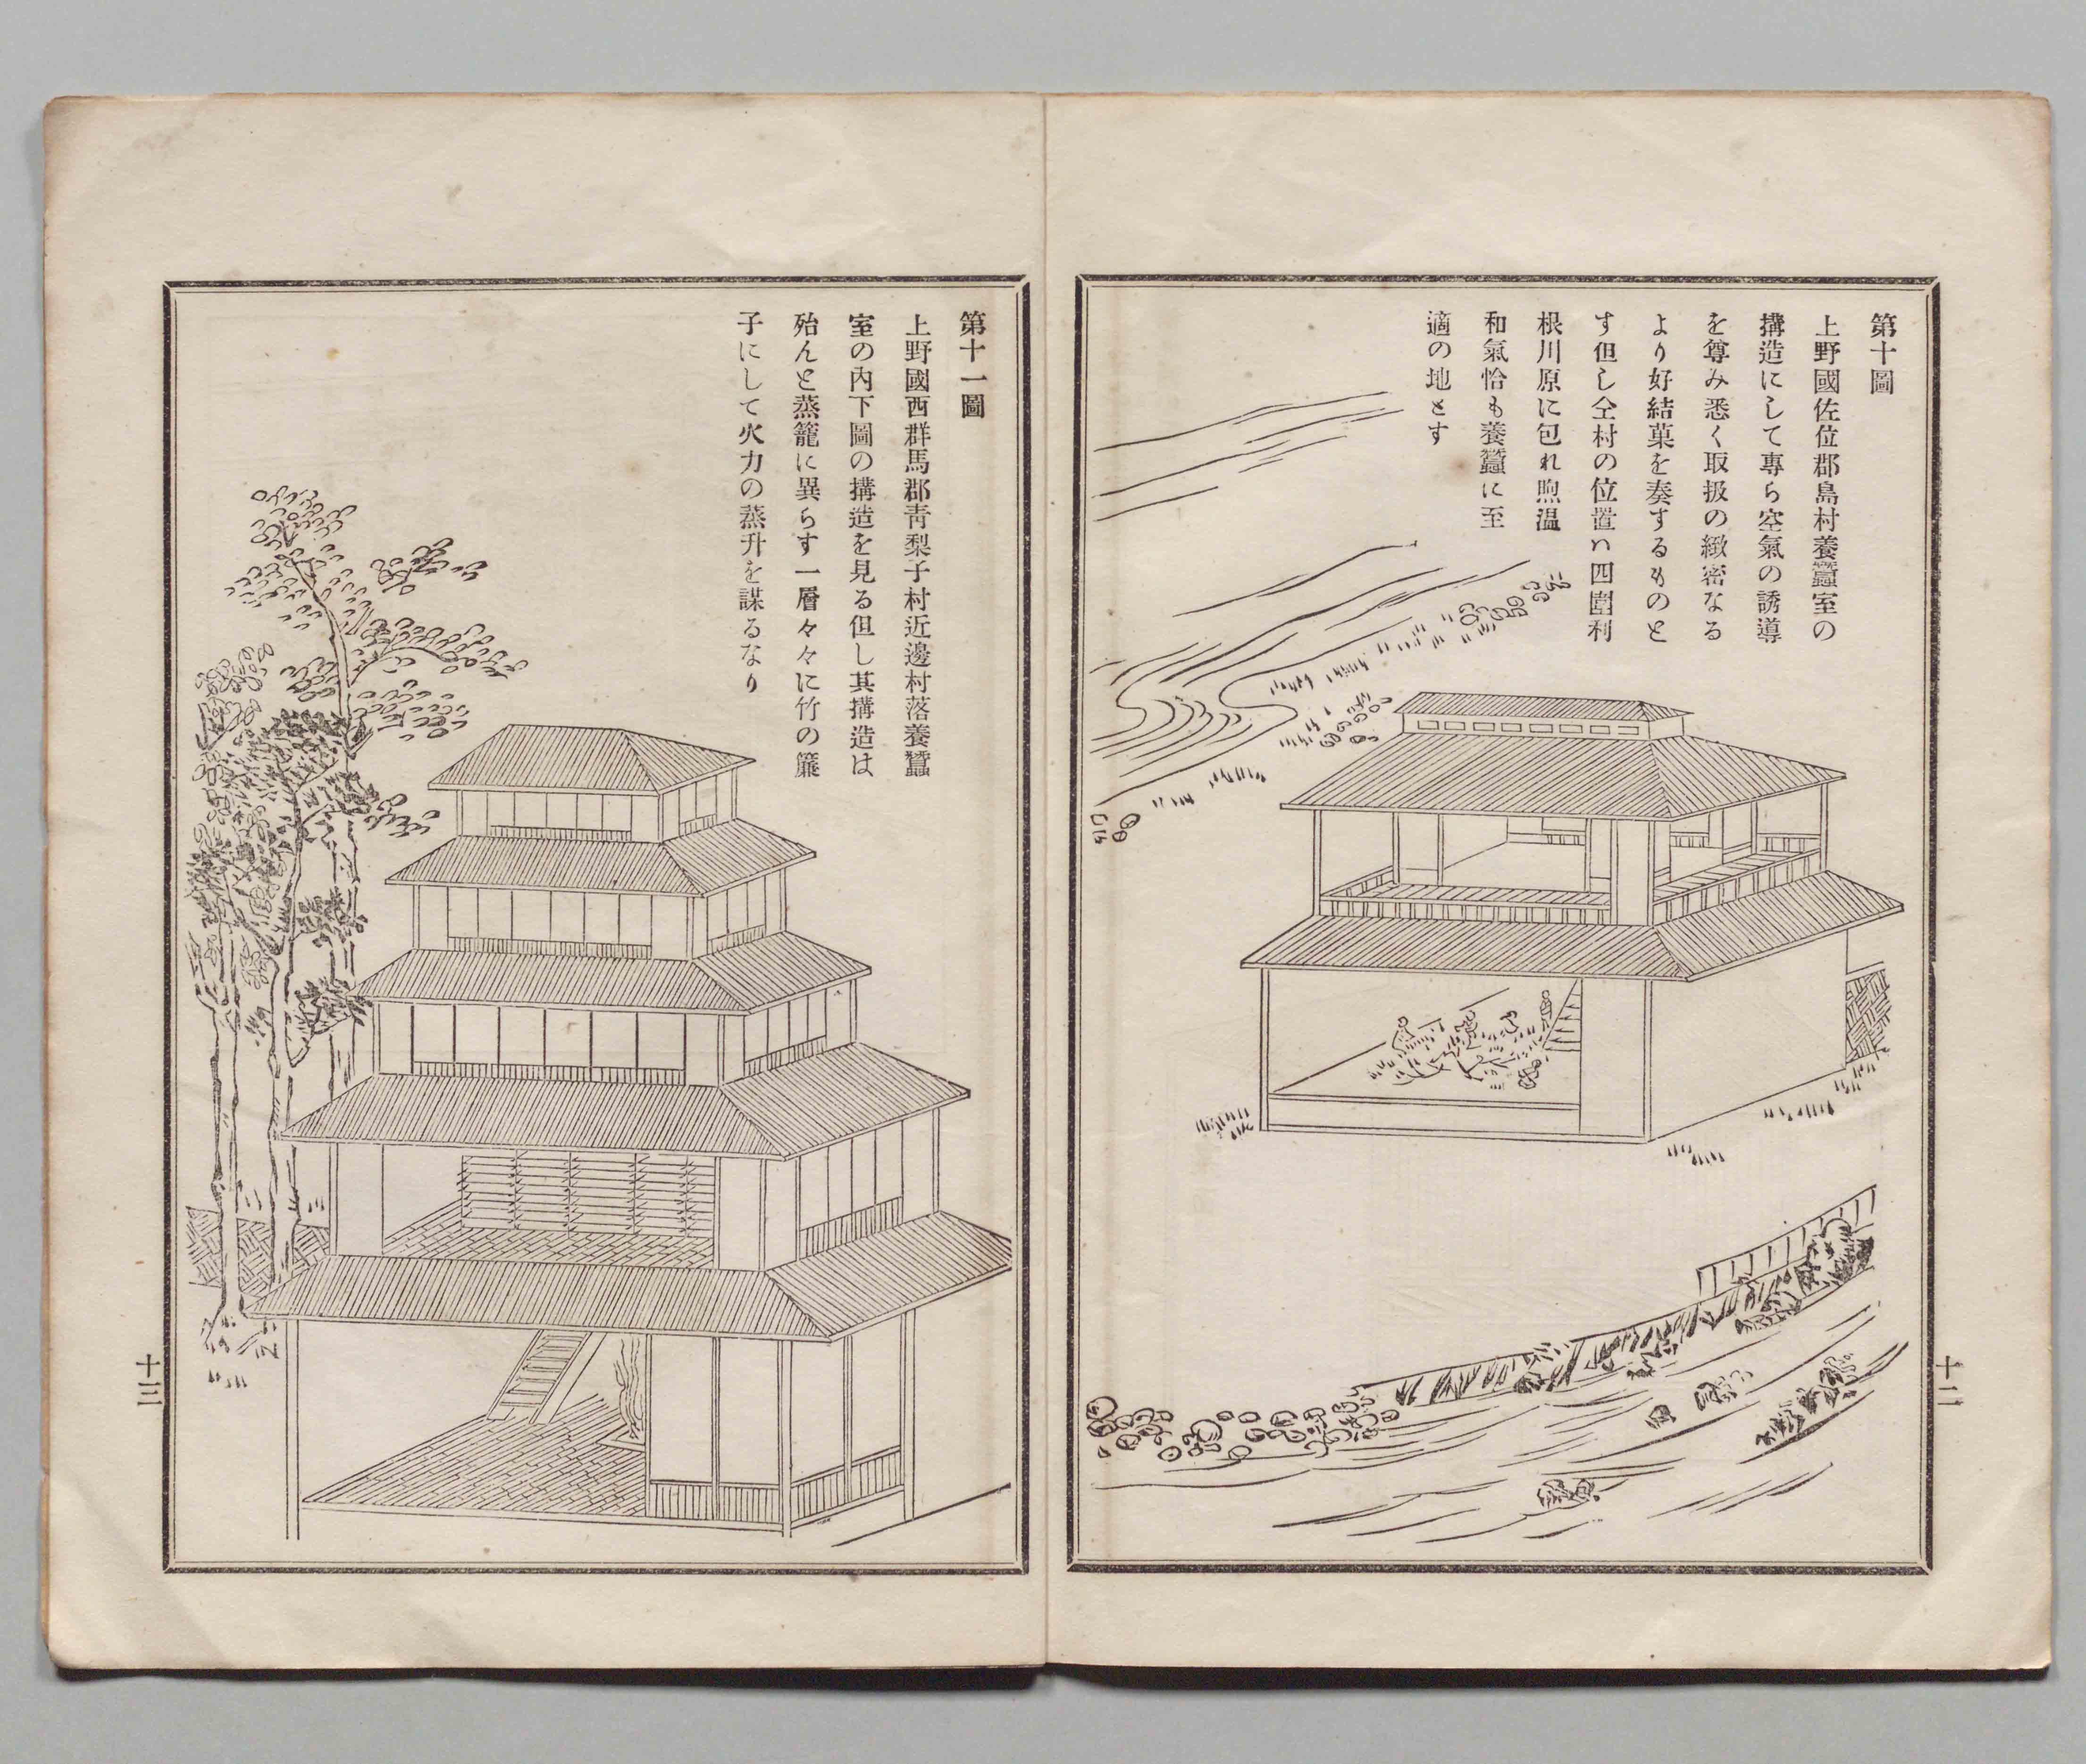 第十圖
上野國佐位郡島村養蠶室の
搆造にして專ら空氣の誘導
を尊み悉く取扱の緻密なる
より好結菓を奏するものと
す但し仝村の位置ハ四圍利
根川原に包れ煦温
和氣恰も養蠶に至
適の地とす
十二
第十一圖
上野國西群馬郡靑梨子村近邊村落養蠶
室の內下圖の搆造を見る但し其搆造は
殆んと蒸籠に異らす一層々々に竹の簾
子にして火力の蒸升を謀るなり
十三